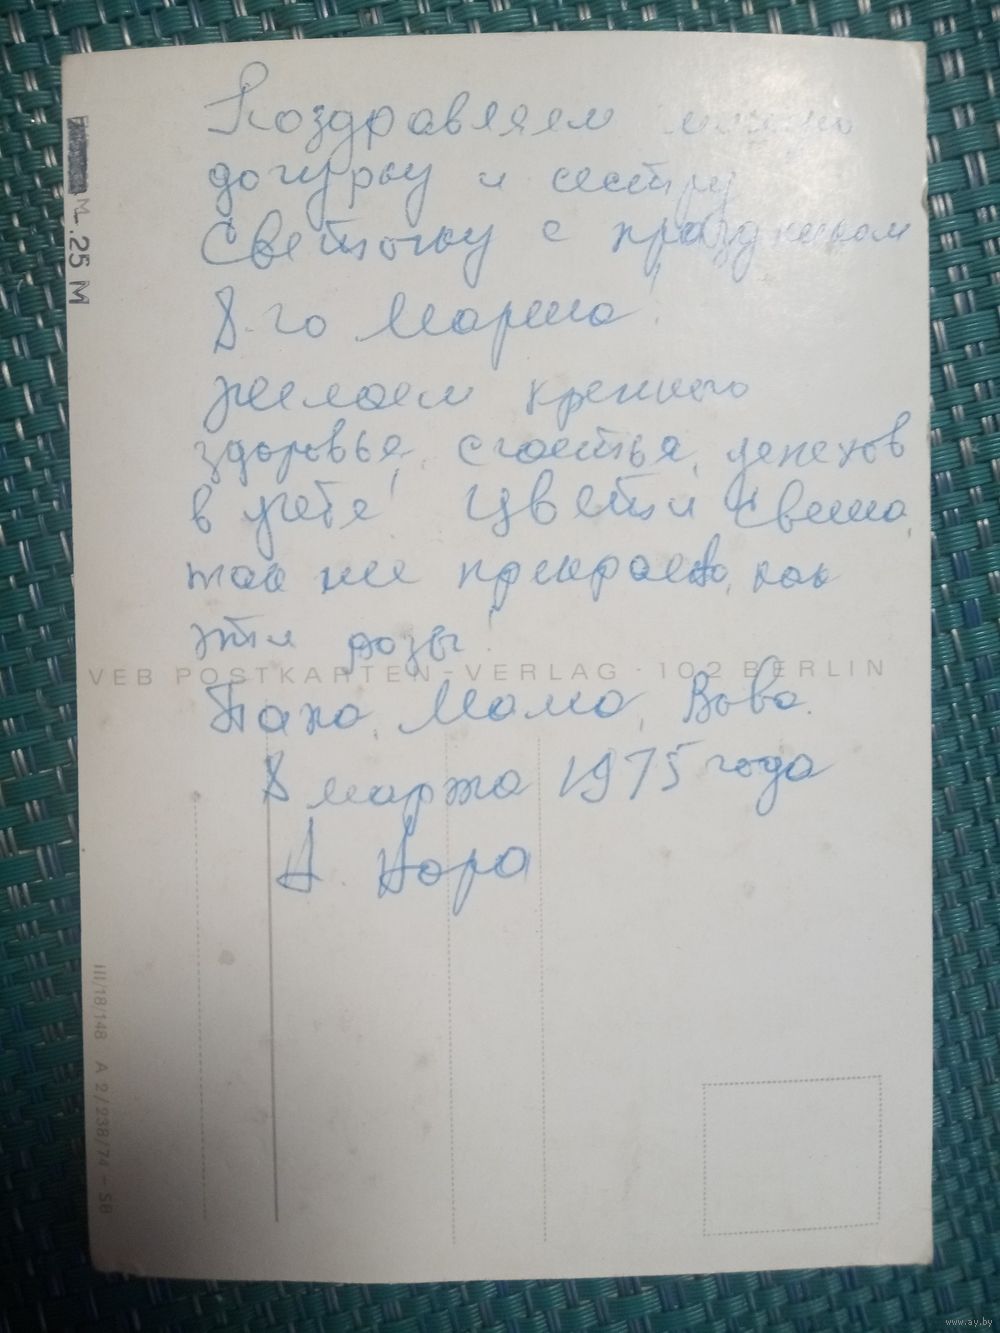 Поздравляем
дочурку и сестру
Светочку с праздником
8-го Марта!
желаем крепкого
здоровья, счастья, успехов
в учёбе! Цвети Света,
так же прекрасно, как
эти розы!
VEB POSTKARTEN-VERLAG · 102 BERLIN
Папа, Мама, Вова.
8 марта 1975 года
Дора
M -.25 M
III/18/148 A 2/238/74 - 56
www.ay.by